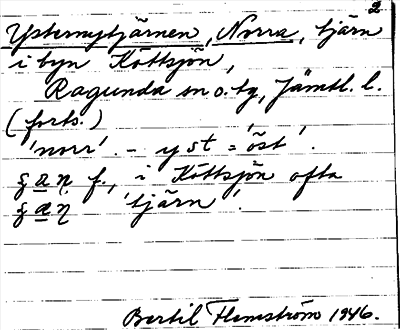 2
Ystermytjärnen, Norra, tjärn
i byn Köttsjön,
Ragunda sn o. tg, Jämtl. l.
(forts.)
'norr'. – yst = 'öst'.
f., i Köttsjön ofta
'tjärn'.
Bertil Flemström 1946.